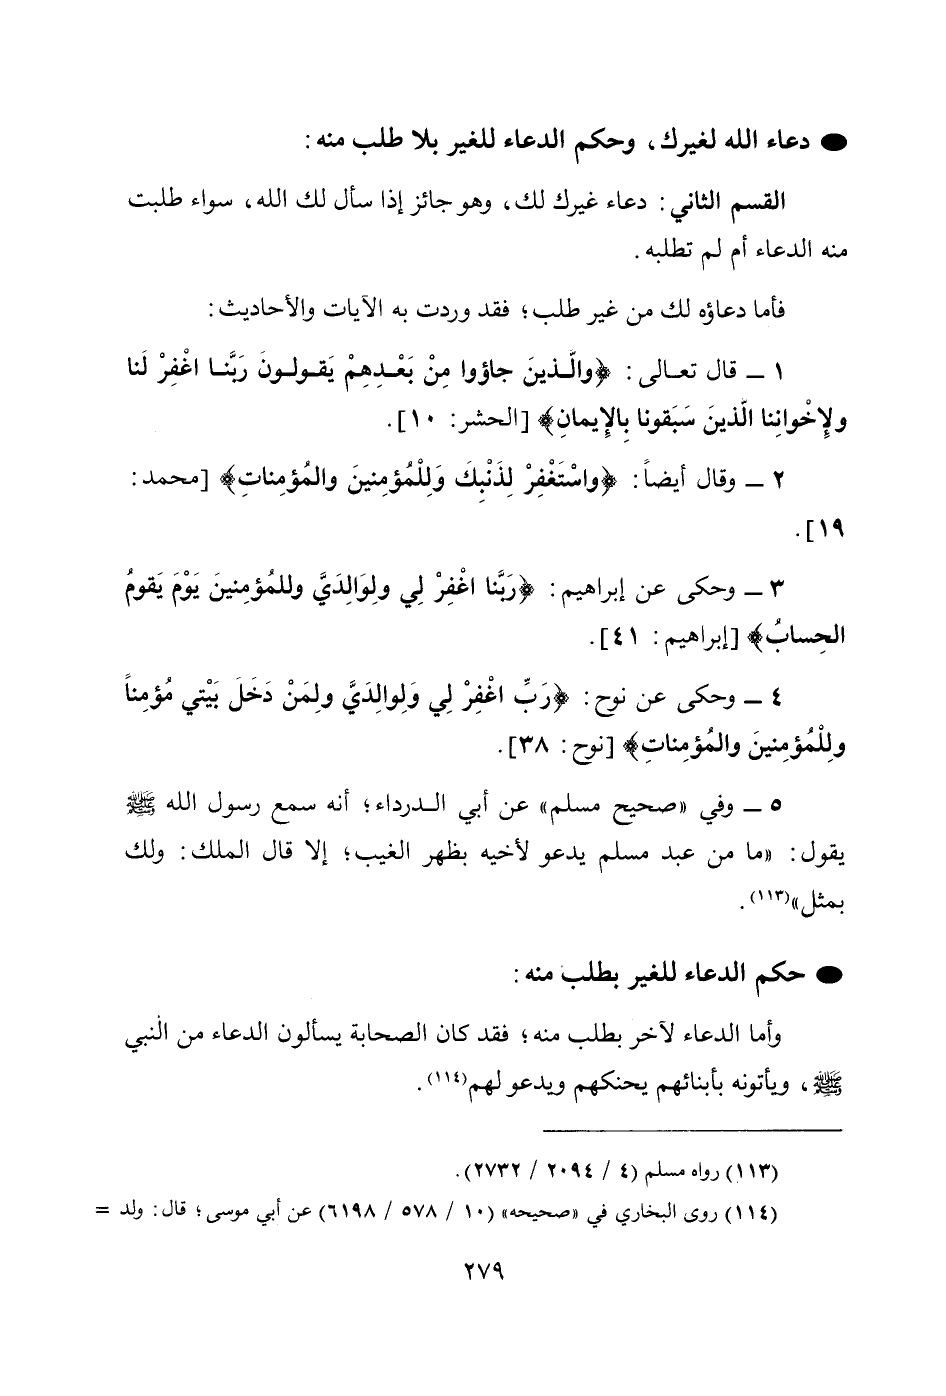 ● دعاء الله لغيرك، وحكم الدعاء للغير بلا طلب منه:
القسم الثاني: دعاء غيرك لك، وهو جائز إذا سأل لك الله، سواء طلبت
منه الدعاء أم لم تطلبه.
فأما دعاؤه لك من غير طلب؛ فقد وردت به الآيات والأحاديث:
١ ـ قال تعالى: ﴿والَّذينَ جاؤوا مِنْ بَعْدِهِمْ يَقولونَ رَبَّنا اغْفِرْ لَنا
ولإِخْوانِنا الَّذينَ سَبَقونا بِالإِيمانِ﴾ [الحشر: ١٠].
٢ ـ وقال أيضاً: ﴿واسْتَغْفِرْ لِذَنْبِكَ وَلِلْمُؤمِنينَ والمُؤمِناتِ﴾ [محمد:
١٩].
٣ ـ وحكى عن إبراهيم: ﴿رَبَّنا اغْفِرْ لِي ولِوَالِدَيَّ وللمُؤمِنينَ يَوْمَ يَقومُ
الحِسابُ﴾ [إبراهيم: ٤١].
٤ ـ وحكى عن نوح: ﴿رَبِّ اغْفِرْ لِي وَلِوالِدَيَّ ولِمَنْ دَخَلَ بَيْتي مُؤمِناً
ولِلْمُؤمِنينَ والمُؤمِناتِ﴾ [نوح: ٣٨].
٥ ـ وفي «صحيح مسلم» عن أبي الدرداء؛ أنه سمع رسول الله ﷺ
يقول: «ما من عبد مسلم يدعو لأخيه بظهر الغيب؛ إلا قال الملك: ولك
بمثل»(١١٣).
● حكم الدعاء للغير بطلب منه:
وأما الدعاء لآخر بطلب منه؛ فقد كان الصحابة يسألون الدعاء من النبي
ﷺ، ويأتونه بأبنائهم يحنكهم ويدعو لهم(١١٤).
(١١٣) رواه مسلم (٤ / ٢٠٩٤ / ٢٧٣٢).
(١١٤) روى البخاري في «صحيحه» (١٠ / ٥٧٨ / ٦١٩٨) عن أبي موسى؛ قال: ولد =
٢٧٩